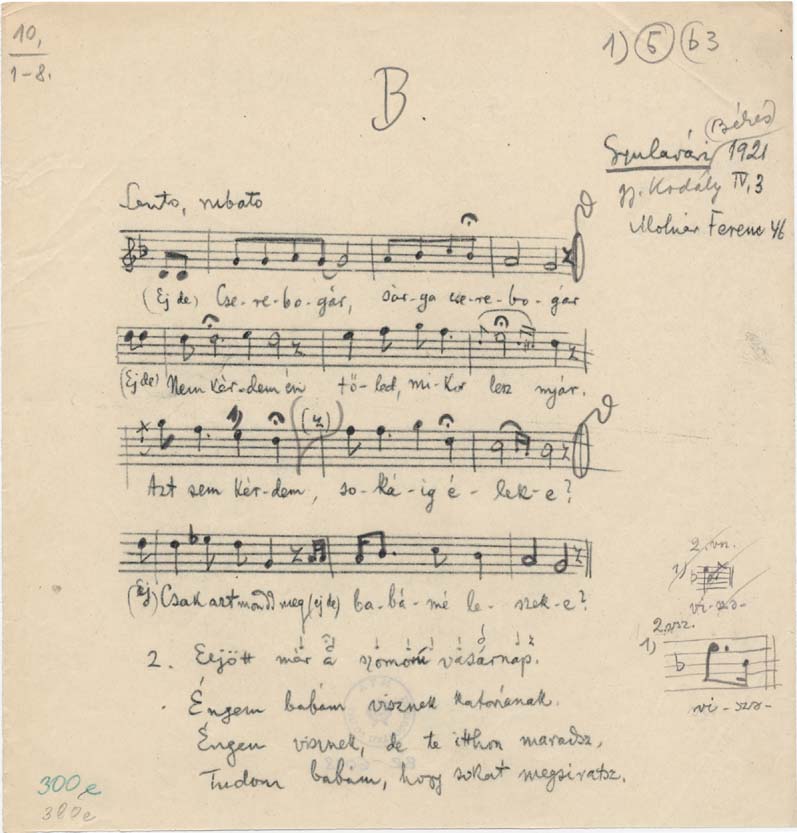 10,
1-8.
1) 5 b3
B.
(Békés)
Gyulavári 1921
gy. Kodály IV, 3
Molnár Ferenc 46
Lento, rubato
(Ej de) Cse-re-bo-gár, sár-ga cse-re-bo-gár
(Ej de) Nem kér-dem én tő-led, mi-kor lesz nyár.
1)
Azt sem kér-dem, so-ká-ig é-lek-e?
(Ej) Csak azt mondd meg (ej de) ba-bá-mé le-szek-e?
2. vsz.
1)
vi-szn-
2. Eljött már a szömörú vasárnap.
Éngem babám visznek katonának.
Éngem visznek, de te itthon maradsz,
Tudom babám, hogy sokat megsiratsz.
2. vsz.
1)
vi-szn-
300 e
300 e